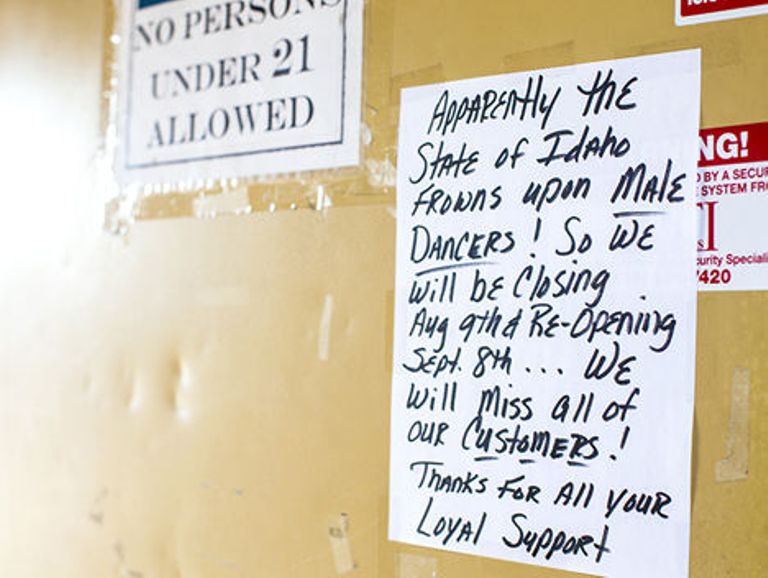 NO PERSONS
UNDER 21
ALLOWED
Apparently the
State of Idaho
Frowns upon Male
Dancers! So We
will be Closing
Aug 9th & Re-Opening
Sept. 8th... We
will Miss all of
our Customers!
Thanks for all your
Loyal Support
NG!
D BY A SECUR
SYSTEM FRO
I
curity Speciali
7420